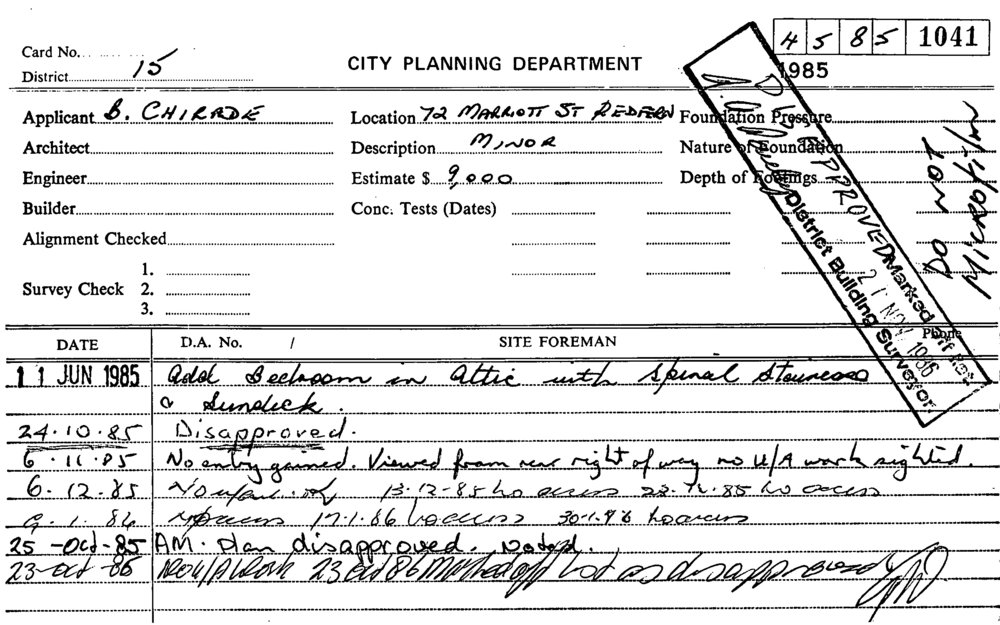 4 5 85 1041
Card No.
1985
District 15
CITY PLANNING DEPARTMENT
Applicant B. CHIRADE Location 72 MARRIOTT ST REDFERN Foundation Pressure
Architect Description MINOR Nature of Foundation
Engineer Estimate $ 9,000 Depth of Footings
Builder Conc. Tests (Dates)
Alignment Checked
1.
Survey Check 2.
3.
DISAPPROVED Marked off
21 NOV 1986
District Building Surveyor.
DO NOT
MICROFILM
DATE D.A. No. / SITE FOREMAN Phone
11 JUN 1985 Add Bedroom in attic with Spiral Staircase
& Sundeck.
24.10.85 Disapproved.
6.11.85 No entry gained. Viewed from rear right of way no U/A work sighted.
6.12.85 13-12-85 no access 85 no access
9.1.86 No access 17-1.86 no access 30-1-86 no access
25-Oct-85 AM. Plan disapproved. Noted.
23-Oct-86 23 Oct 86 Marked off list as disapproved